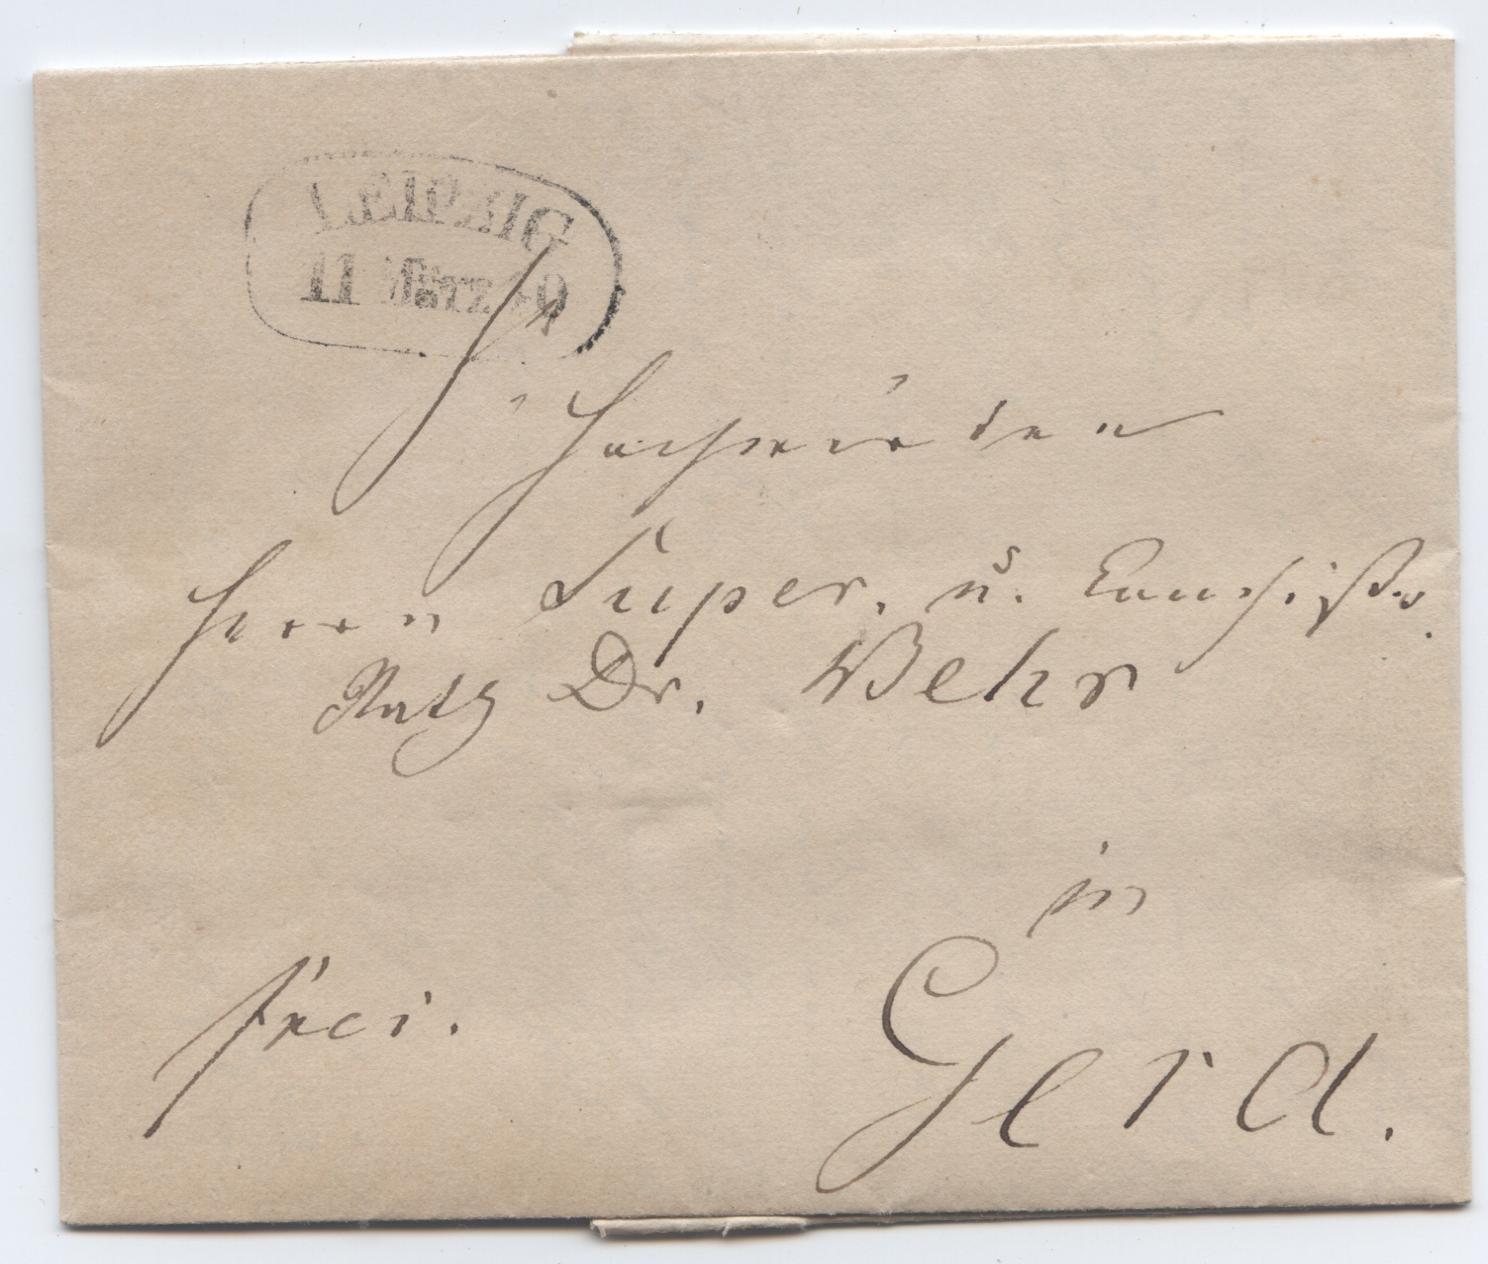 LEIPZIG
11 März 40
Sr Hochwürden
Herrn Super. u. Consist.
Rath Dr. Behr
in
Gera.
frei.